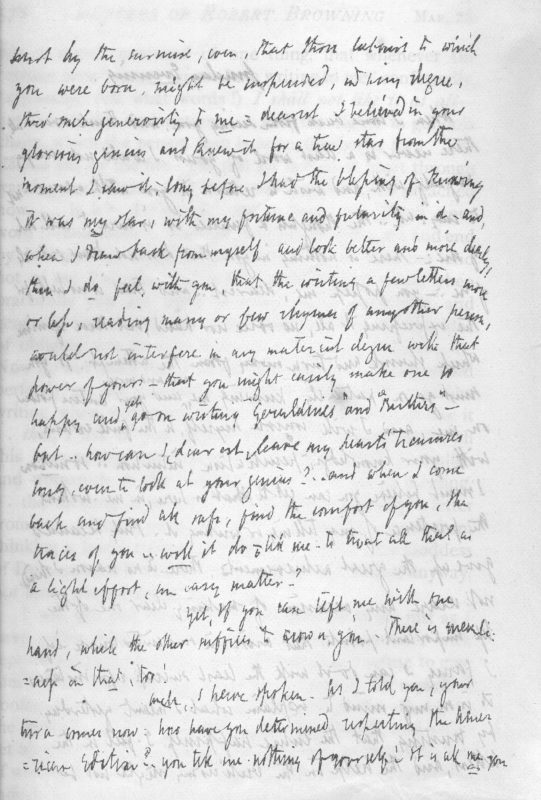 hurt by the surmise, even, that those labours to which
you were born, might be suspended, in any degree,
thro' such generosity to me = dearest I believed in your
glorious genius and knew it for a true star from the
moment I saw it; long before I had the blessing of knowing
it was my star, with my fortune and futurity in it - and,
when I draw back from myself and look better and more clearly,
then I do feel, with you that the writing a few letters more
or less, reading many or few rhymes of any other person,
would not interfere in any material degree with that
power of yours - that you might easily make one so
happy and yet go on writing "Geraldines" and "Berthas" -
but .. how can I, dearest, leave my heart's treasures
long, even to look at your genius? .. and when I come
back and find all safe, find the comfort of you, the
traces of you .. will it do = tell me - to trust all that as
a light effort, an easy matter?
Yet, if you can lift me with one
hand, while the other suffices to crown you There is queenli-
=ness in that, too!
Well .. I have spoken. As I told you, your
turn comes now = how have you determined respecting the Amer-
=ican Edition? - you tell me nothing of yourself! It is all me you